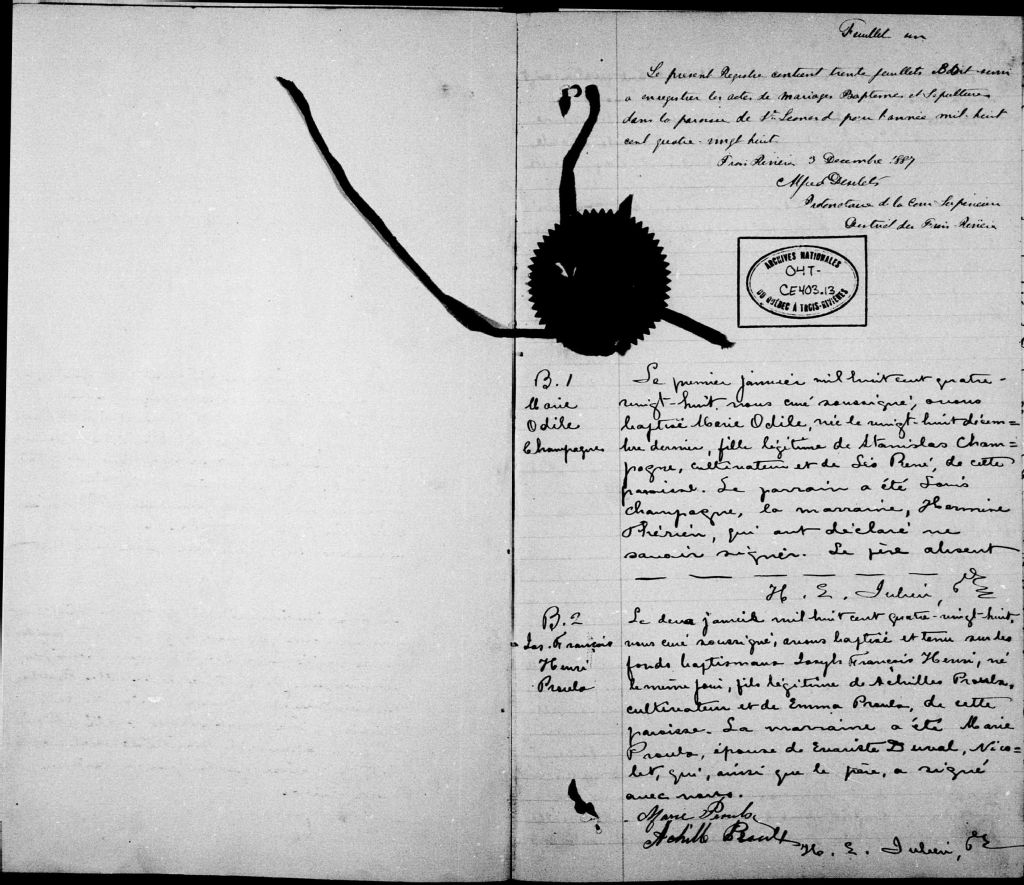 Feuillet un
Le present Registre contient trente feuillets
a enregistrer les actes de mariages Baptemes et Sepultures
dans la paroisse de St. Leonard pour l'année mil-huit
cent quatre-vingt huit.
Trois Rivieres 3 Decembre 1887
Alfred Desilets
Protonotaire de la Cour Superieure
District des Trois-Rivières
ARCHIVES NATIONALES
04T-
CE403-13
DU QUÉBEC À TROIS-RIVIÈRES
B. 1
Marie
Odile
Champagne
Le premier janvier mil huit cent quatre-
vingt-huit, nous curé soussigné, avons
baptisé Marie Odile, née le vingt-huit décem=
bre dernier, fille légitime de Stanislas Cham=
pagne, cultivateur et de Léo René, de cette
paroisse. Le parrain a été Louis
Champagne, la marraine, Hermine
Thérien, qui ont déclaré ne
savoir signer. Le père absent
H. E. Julien, Ptre
B. 2
Jos. François
Henri
Proulx
Le deux janvier mil huit cent quatre-vingt-huit,
nous curé soussigné, avons baptisé et tenu sur les
fonds baptismaux Joseph François Henri, né
le même jour, fils légitime de Achilles Proulx,
cultivateur et de Emma Proulx, de cette
paroisse. La marraine a été Marie
Proulx, épouse de Evariste Duval, Nico=
let, qui, ainsi que le père, a signé
avec nous.
Marie Proulx
Achille Proulx
H. E. Julien, Ptre